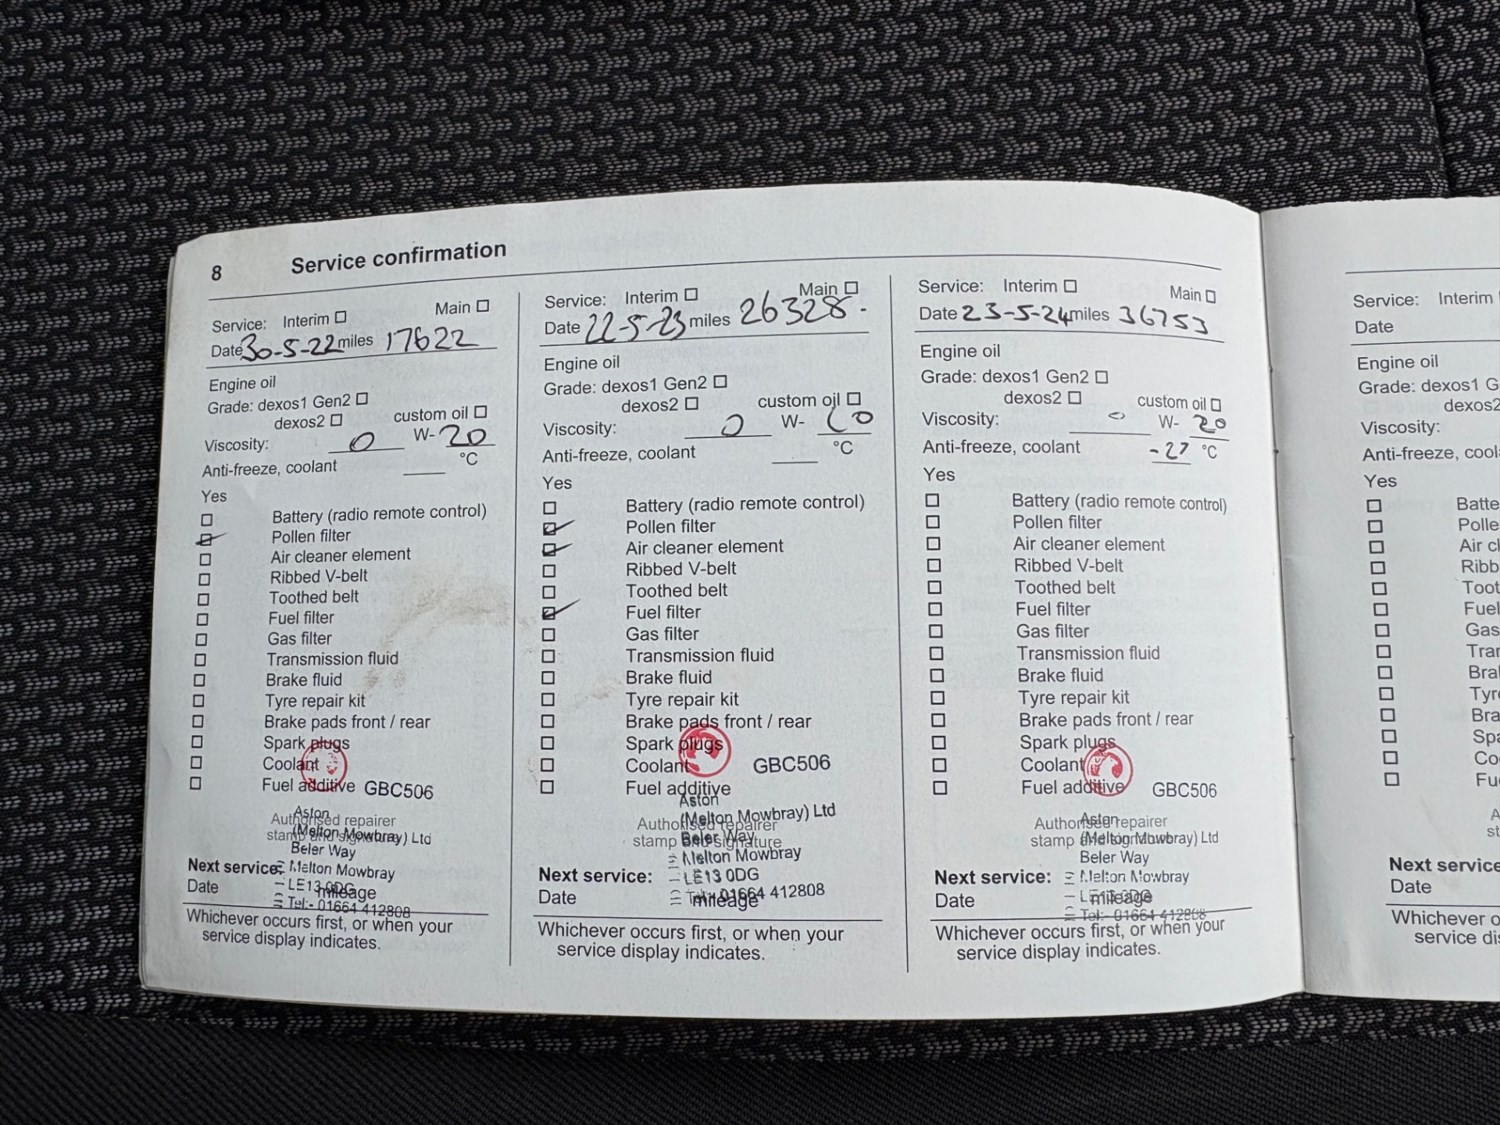 8 Service confirmation
Service: Interim ☐ Main ☐
Date 30-5-22 miles 17622
Engine oil
Grade: dexos1 Gen2 ☐
dexos2 ☐ custom oil ☐
Viscosity: 0 W- 20
Anti-freeze, coolant ___ °C
Yes
☐ Battery (radio remote control)
☑ Pollen filter
☐ Air cleaner element
☐ Ribbed V-belt
☐ Toothed belt
☐ Fuel filter
☐ Gas filter
☐ Transmission fluid
☐ Brake fluid
☐ Tyre repair kit
☐ Brake pads front / rear
☐ Spark plugs
☐ Coolant
☐ Fuel additive GBC506
Authorised repairer
stamp and signature
Aston
(Melton Mowbray) Ltd
Beler Way
Melton Mowbray
LE13 0DG
Tel:- 01664 412808
Next service:
Date mileage
Whichever occurs first, or when your
service display indicates.
Service: Interim ☐ Main ☐
Date 22-5-23 miles 26328.
Engine oil
Grade: dexos1 Gen2 ☐
dexos2 ☐ custom oil ☐
Viscosity: 0 W-
Anti-freeze, coolant ___ °C
Yes
☐ Battery (radio remote control)
☑ Pollen filter
☑ Air cleaner element
☐ Ribbed V-belt
☐ Toothed belt
☑ Fuel filter
☐ Gas filter
☐ Transmission fluid
☐ Brake fluid
☐ Tyre repair kit
☐ Brake pads front / rear
☐ Spark plugs
☐ Coolant GBC506
☐ Fuel additive
Authorised repairer
stamp and signature
Aston
(Melton Mowbray) Ltd
Beler Way
Melton Mowbray
LE13 0DG
Tel:- 01664 412808
Next service:
Date mileage
Whichever occurs first, or when your
service display indicates.
Service: Interim ☐ Main ☐
Date 23-5-24 miles 36753
Engine oil
Grade: dexos1 Gen2 ☐
dexos2 ☐ custom oil ☐
Viscosity: 0 W- 20
Anti-freeze, coolant -27 °C
Yes
☐ Battery (radio remote control)
☐ Pollen filter
☐ Air cleaner element
☐ Ribbed V-belt
☐ Toothed belt
☐ Fuel filter
☐ Gas filter
☐ Transmission fluid
☐ Brake fluid
☐ Tyre repair kit
☐ Brake pads front / rear
☐ Spark plugs
☐ Coolant
☐ Fuel additive GBC506
Authorised repairer
stamp and signature
Aston
(Melton Mowbray) Ltd
Beler Way
Melton Mowbray
LE13 0DG
Tel:- 01664 412808
Next service:
Date mileage
Whichever occurs first, or when your
service display indicates.
Service: Interim
Date
Engine oil
Grade: dexos1 G
dexos2
Viscosity:
Anti-freeze, cool
Yes
☐ Batte
☐ Polle
☐ Air cl
☐ Ribb
☐ Toot
☐ Fuel
☐ Gas
☐ Trar
☐ Bral
☐ Tyre
☐ Bra
☐ Spa
☐ Co
☐ Fu
A
st
Next service
Date
Whichever o
service dis